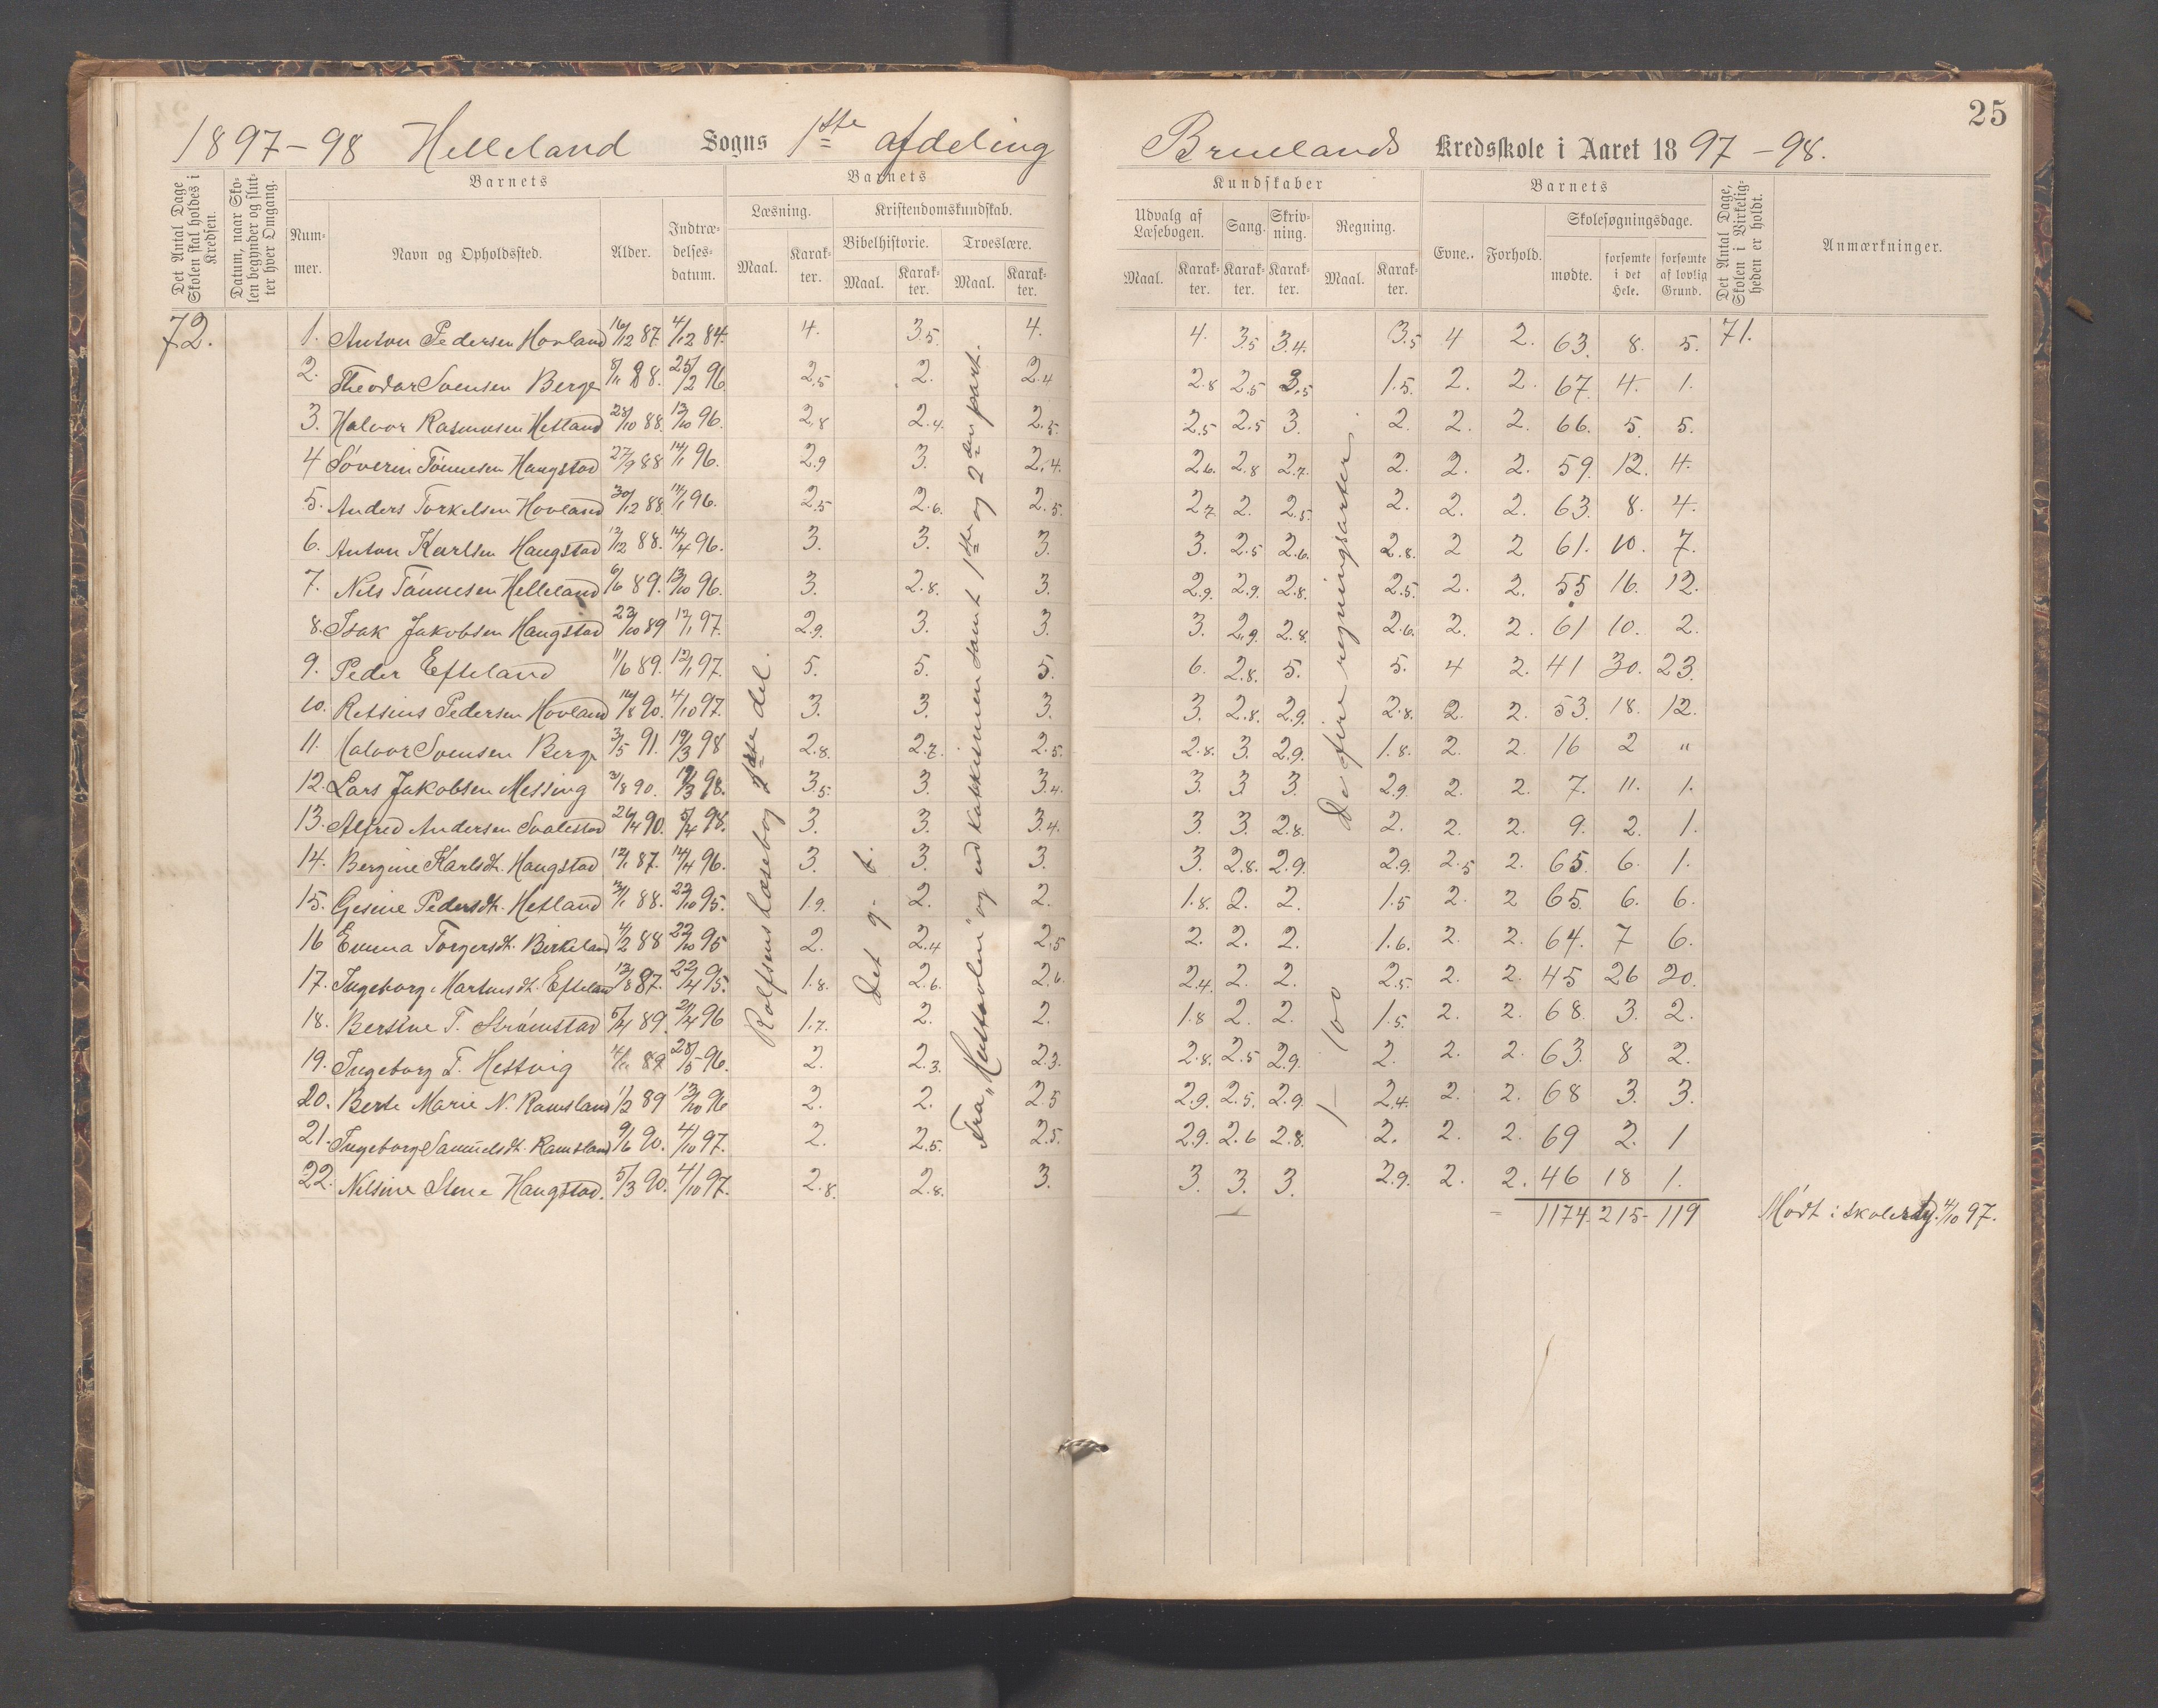 25
1897-98 Helleland Sogns 1ste afdeling
Bruelands Kredsskole i Aaret 1897-98.
Det Antal Dage Skolen skal holdes i Kredsen. Datum, naar Skolen begynder og slutter hver Omgang. Barnets Barnets Kundskaber Barnets Det Antal Dage, Skolen i Virkeligheden er holdt. Anmærkninger.
Nummer. Navn og Opholdssted. Alder. Indtrædelsesdatum. Læsning. Kristendomskundskab. Udvalg af Læsebogen. Sang. Skrivning. Regning. Evne. Forhold. Skolesøgningsdage.
Bibelhistorie. Troeslære.
Maal. Karakter. Maal. Karakter. Maal. Karakter. Maal. Karakter. Karakter. Karakter. Maal. Karakter. mødte. forsømte i det Hele. forsømte af lovlig Grund.
72. 1. Anton Pedersen Hovland 16/12 87. 4/12 84. 4. 3.5. 4. 4. 3.5 3.4. 3.5 4 2. 63. 8. 5. 71.
2. Theodor Svensen Berge 8/11 88. 25/2 96. 2.5 2. 2.4 2.8 2.5 3.5 1.5. 2. 2. 67. 4. 1.
3. Halvor Rasmusen Hetland 28/10 88. 13/10 96. 2.8 2.4. 2.5. 2.5 2.5 3. 2. 2. 2. 66. 5. 5.
4 Søverin Tønnesen Haugstad 27/9 88 14/1 96. 2.9 3. 2.4. 2.6. 2.8 2.7. 2. 2. 2. 59. 12. 4.
5. Anders Torkelsen Hovland 30/12 88. 14/1 96. 2.5 2.6. 2.5. 2.7 2. 2.5. 2. 2. 2. 63. 8. 4.
6. Anton Karlsen Haugstad 12/12 88. 14/4 96. 3. 3. 3. 3. 2.5 2.6. 2.8. 2 2 61. 10. 7.
7. Nils Tønnesen Helleland 6/6 89. 13/10 96. 3. 2.8. 3. 2.9. 2.9. 2.8. 2.5. 2. 2. 55 16. 12.
8. Isak Jakobsen Haugstad 23/10 89 12/1 97. 2.9. 3. 3. 3. 2.9. 2.8. 2.6. 2. 2. 61 10. 2.
9. Peder Efteland 11/6 89. 12/1 97. 5. 5. 5. 6. 2.8. 5. 5. 4 2. 41 30. 23.
10. Retsius Pedersen Hovland 16/8 90. 4/10 97. 3. 3. 3. 3. 2.8. 2.9. 2.8. 2. 2. 53. 18. 12.
11. Halvor Svensen Berge 3/5 91. 19/3 98 2.8. 2.7. 2.5. 2.8. 3. 2.9. 1.8. 2. 2. 16 2 "
12. Lars Jakobsen Messing 3/8 90. 19/3 98. 3.5. 3. 3.4. 3. 3 3. 2.9. 2. 2. 7. 11. 1.
13. Alfred Andersen Svalestad 26/4 90. 5/4 98. 3. 3. 3.4. 3. 3. 2.8. 2. 2. 2. 9. 2. 1.
14. Bergine Karlsdt. Haugstad 12/1 87. 14/4 96. 3. 3. 3. 3. 2.8. 2.9. 2.9. 2.5 2. 65. 6. 1.
15. Gesine Pedersdt. Hetland 3/1 88. 22/10 95. 1.9. 2. 2. 1.8. 2. 2. 1.5 2. 2 65. 6. 6.
16 Emma Torgersdt. Birkeland 4/2 88 22/10 95 2. 2.4 2.5 2. 2. 2. 1.6. 2. 2. 64. 7 6.
17. Ingeborg Martinsdt. Efteland 13/8 87. 22/4 95. 1.8. 2.6. 2.6 2.4. 2. 2. 2.5. 2. 2. 45 26 20.
18. Bertine T. Strømstad 5/4 89. 21/4 96 1.7. 2. 2. 1.8 2. 2. 1.5. 2. 2. 68. 3. 2.
19. Ingeborg T. Hestvig 4/11 89 28/5 96. 2. 2.3. 2.3. 2.8. 2.5 2.9. 2. 2. 2. 63. 8 2.
20. Berte Marie N. Ramsland 1/2 89 13/10 96 2. 2. 2.5 2.9. 2.5. 2.9. 2.4. 2. 2. 68 3. 3.
21. Ingeborg Samuelsdt. Ramsland 9/6 90. 4/10 97. 2. 2.5. 2.5. 2.9. 2.6 2.8. 2. 2. 2. 69 2. 1
22. Nilsine Stene Haugstad. 5/3 90. 4/10 97. 2.8. 2.8. 3. 3. 3. 3. 2.9. 2. 2. 46 18 1.
1174. 215- 119 Mødt i skolen 4/10 97.
Rolfsens læsebog 1ste del.
Det g. t.
Fra og ud katekismen samt 1ste og 2den part.
1 — 100 De fire regningsarter.